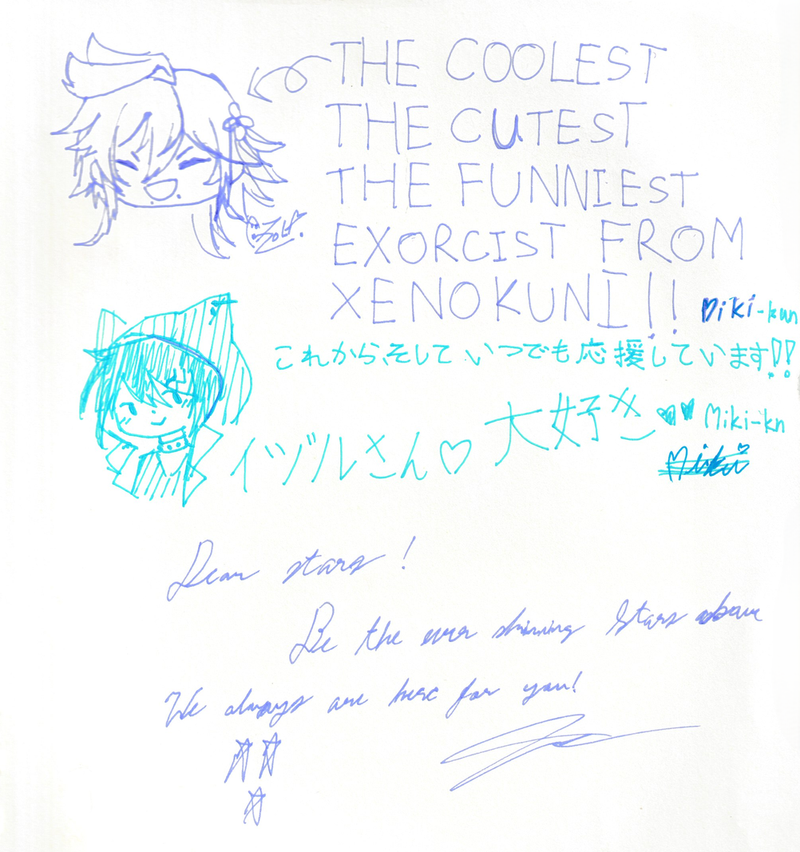 THE COOLEST
THE CUTEST
THE FUNNIEST
EXORCIST FROM
XENOKUNI!!
Miki-kun
これから、そして いつでも応援しています!!
イヅルさん♡ 大好き♥♥ Miki-kn
Miki
Dear stars!
Be the ever shinning stars above
We always are here for you!